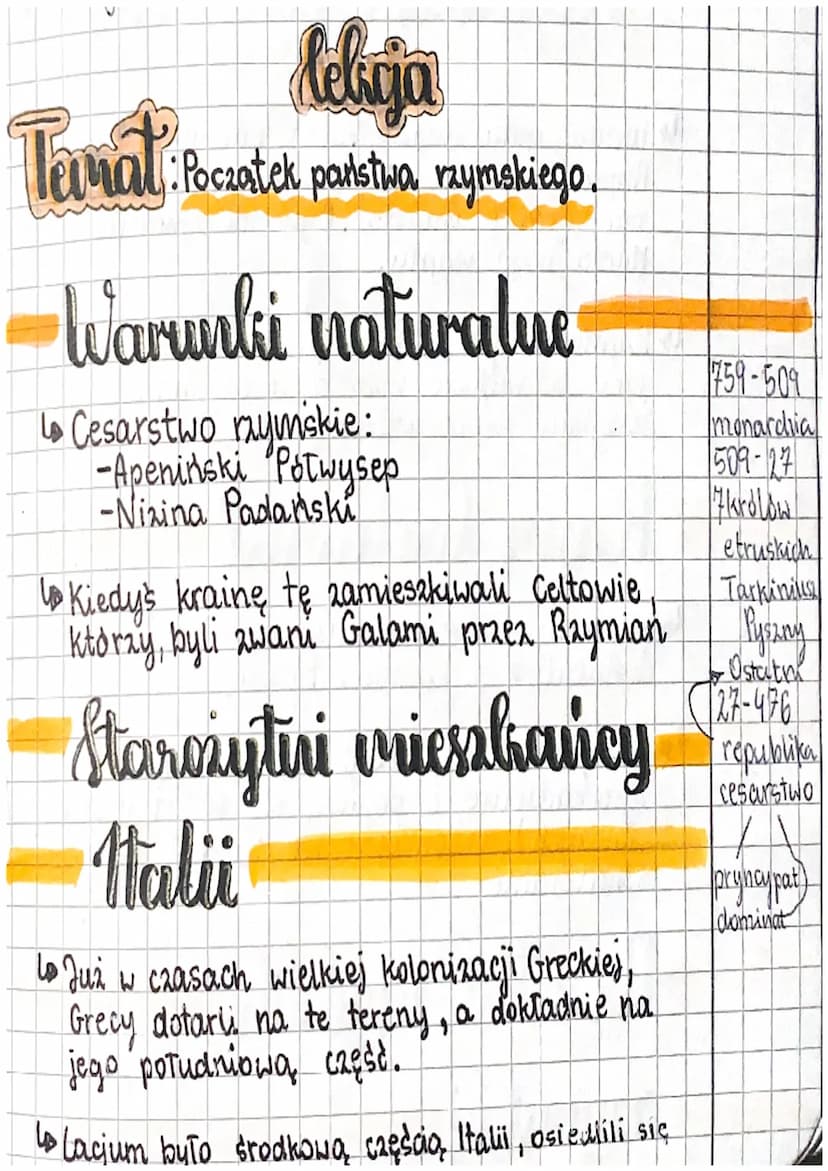 lekcja
Temat: Początek państwa rzymskiego.
Warunki naturalne
↳ Cesarstwo rzymskie:
-Apeniński Półwysep
-Nizina Padański
↳ Kiedyś krainę tę zamieszkiwali Celtowie,
którzy, byli zwani Galami przez Rzymian
Starożytni mieszkańcy
Italii
↳ Już w czasach wielkiej kolonizacji Greckiej,
Grecy dotarli na te tereny, a dokładnie na
jego południową część.
↳ Lacjum było środkową częścią Italii, osiedlili się
759-509
monarchia
509-27
7 królów
etruskich
Tarkiniusz
Pyszny
Ostatni
27-476
republika
cesarstwo
pryncypat
dominat